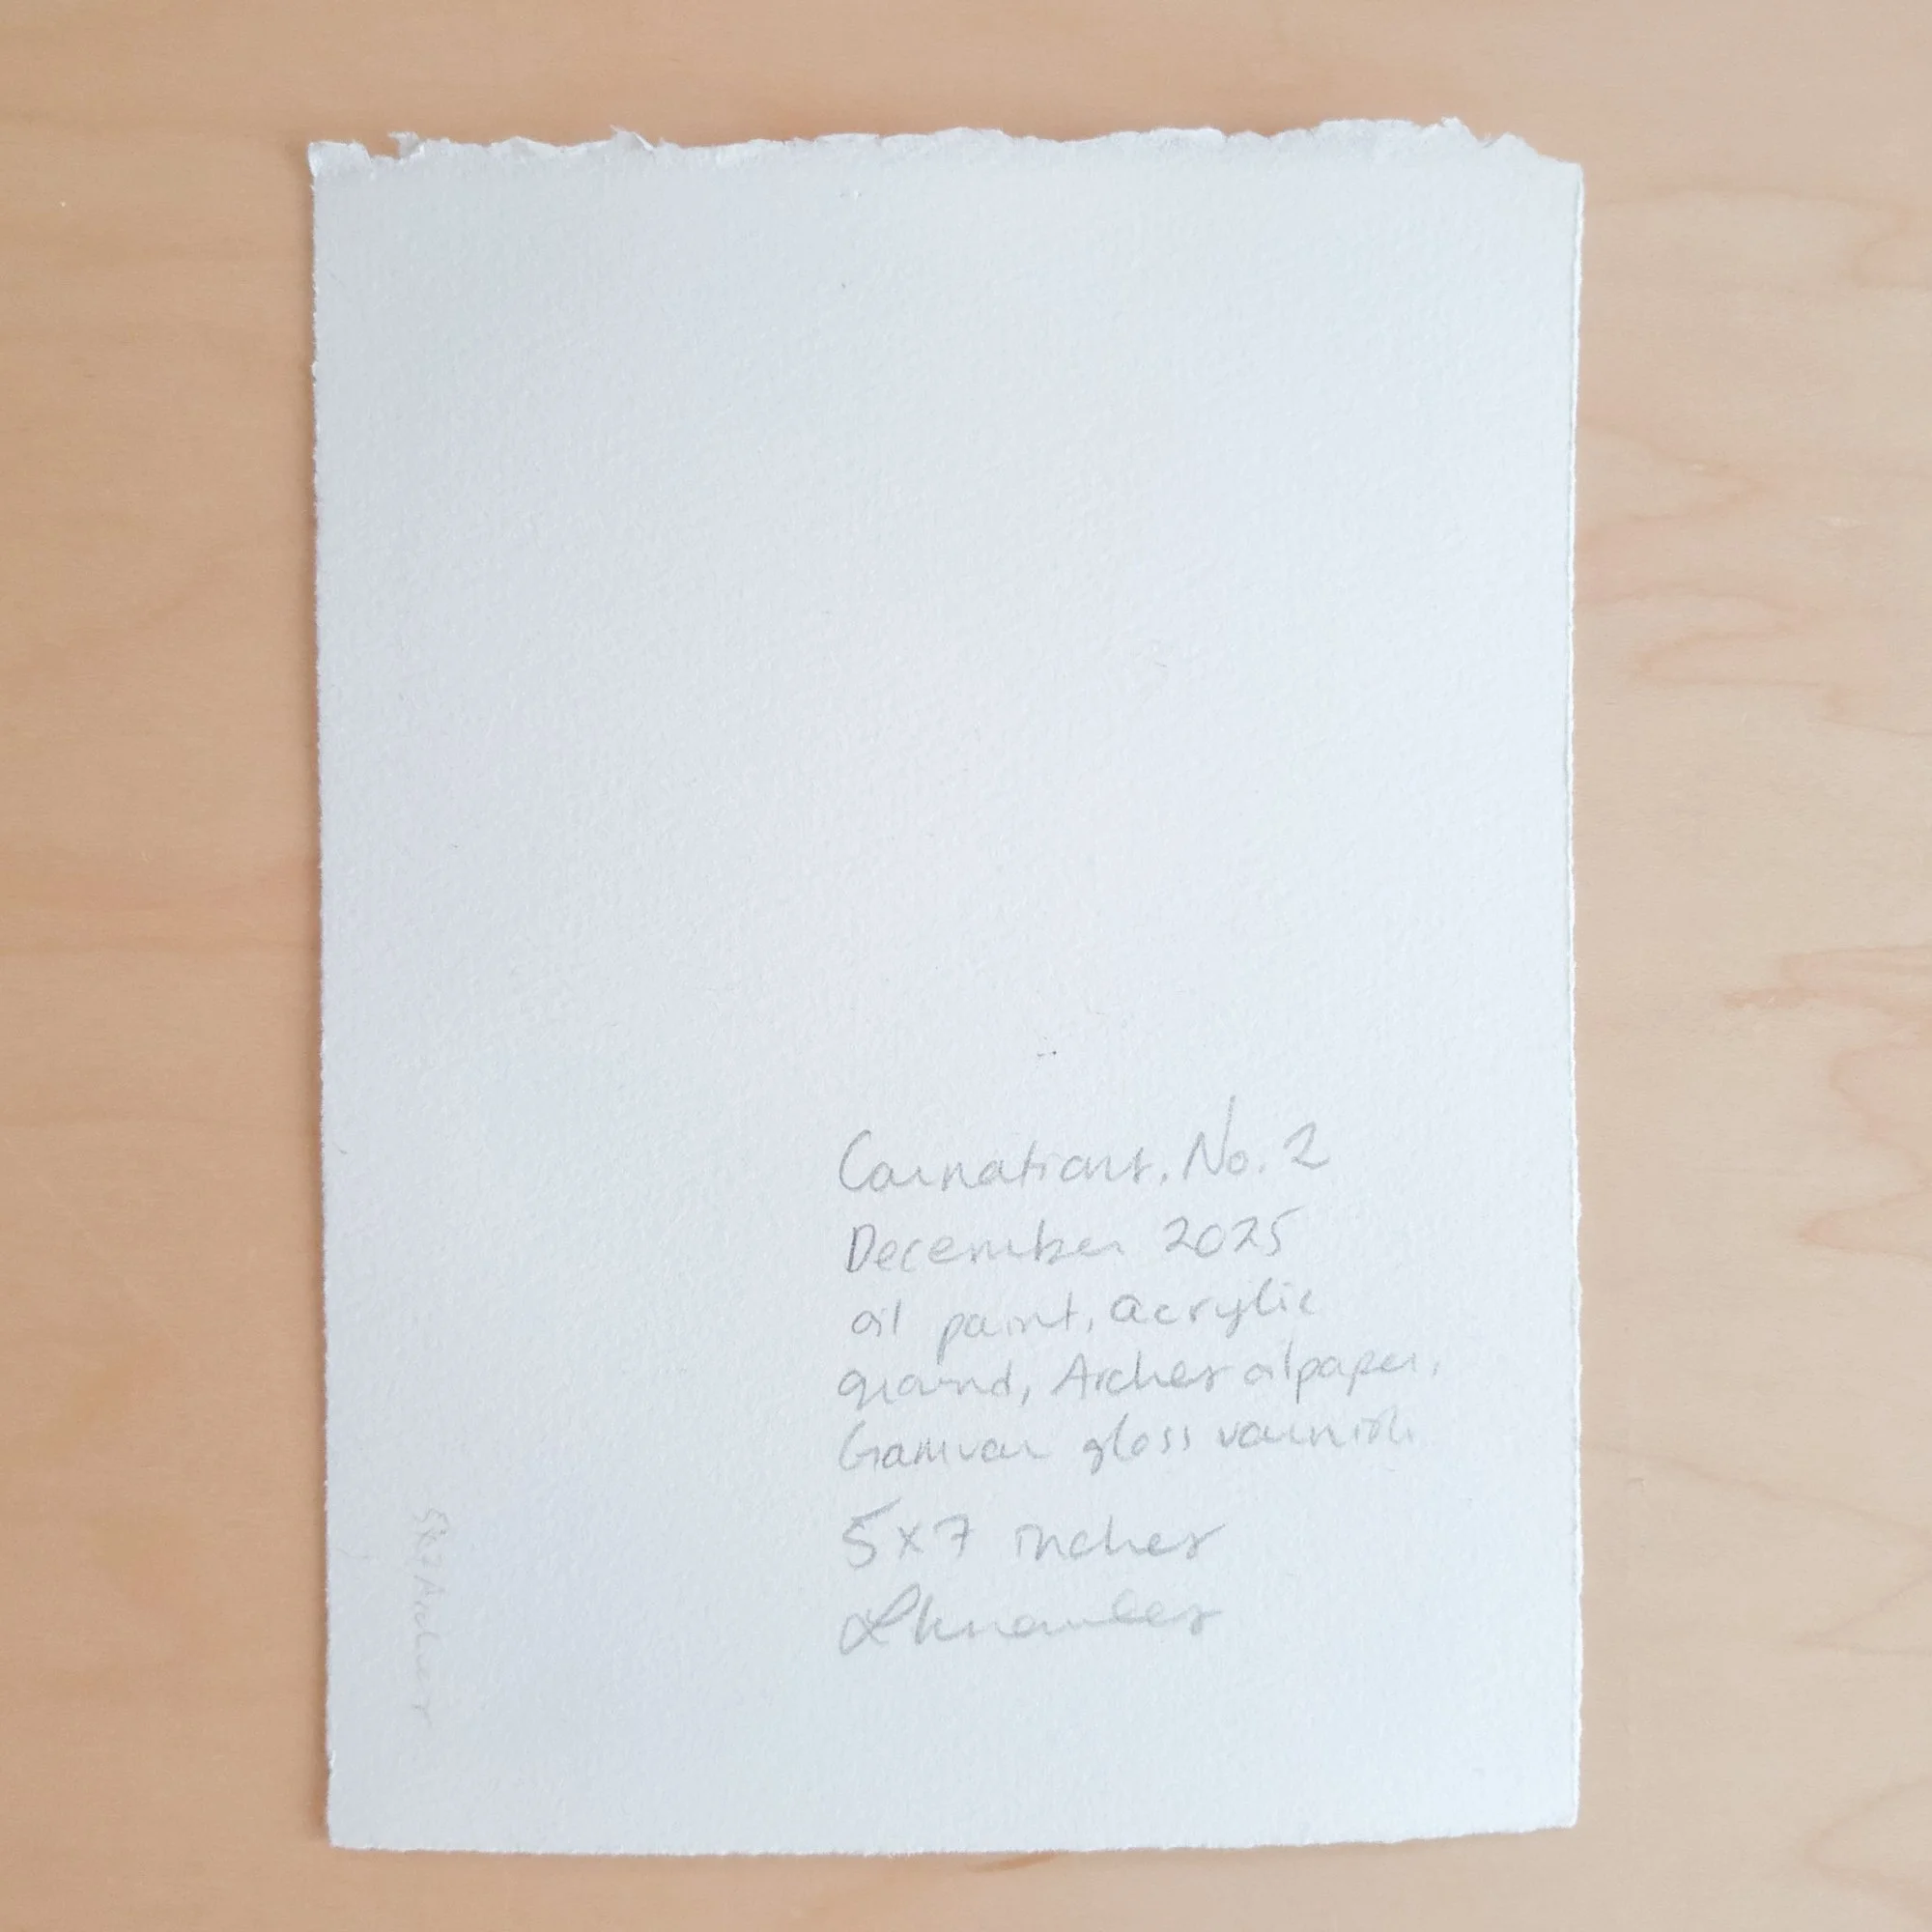 Carnations. No. 2
December 2025
oil paint, acrylic
ground, Arches oilpaper,
Gamvar gloss varnish
5x7 inches
LKnowles
5x7 Arches